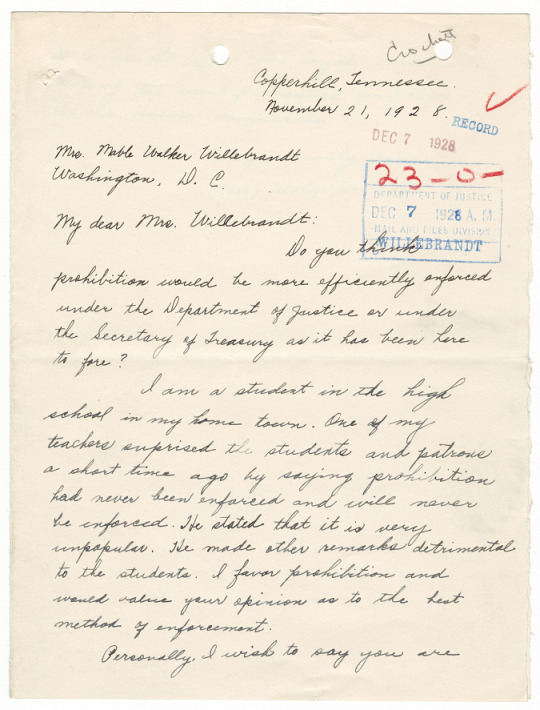 Crockett
Copperhill, Tennessee.
November 21, 1928.
RECORD
DEC 7 1928
Mrs. Mable Walker Willebrandt
Washington, D. C.
23-0-
DEPARTMENT OF JUSTICE
DEC 7 1928 A. M.
MAIL AND FILES DIVISION
WILLEBRANDT
My dear Mrs. Willebrandt:
Do you think
prohibition would be more efficiently enforced
under the Department of Justice or under
the Secretary of Treasury as it has been here
to fore?
I am a student in the high
school in my home town. One of my
teachers suprised the students and patrons
a short time ago by saying prohibition
had never been enforced and will never
be enforced. He stated that it is very
unpopular. He made other remarks detrimental
to the students. I favor prohibition and
would value your opinion as to the best
method of enforcement.
Personally, I wish to say you are